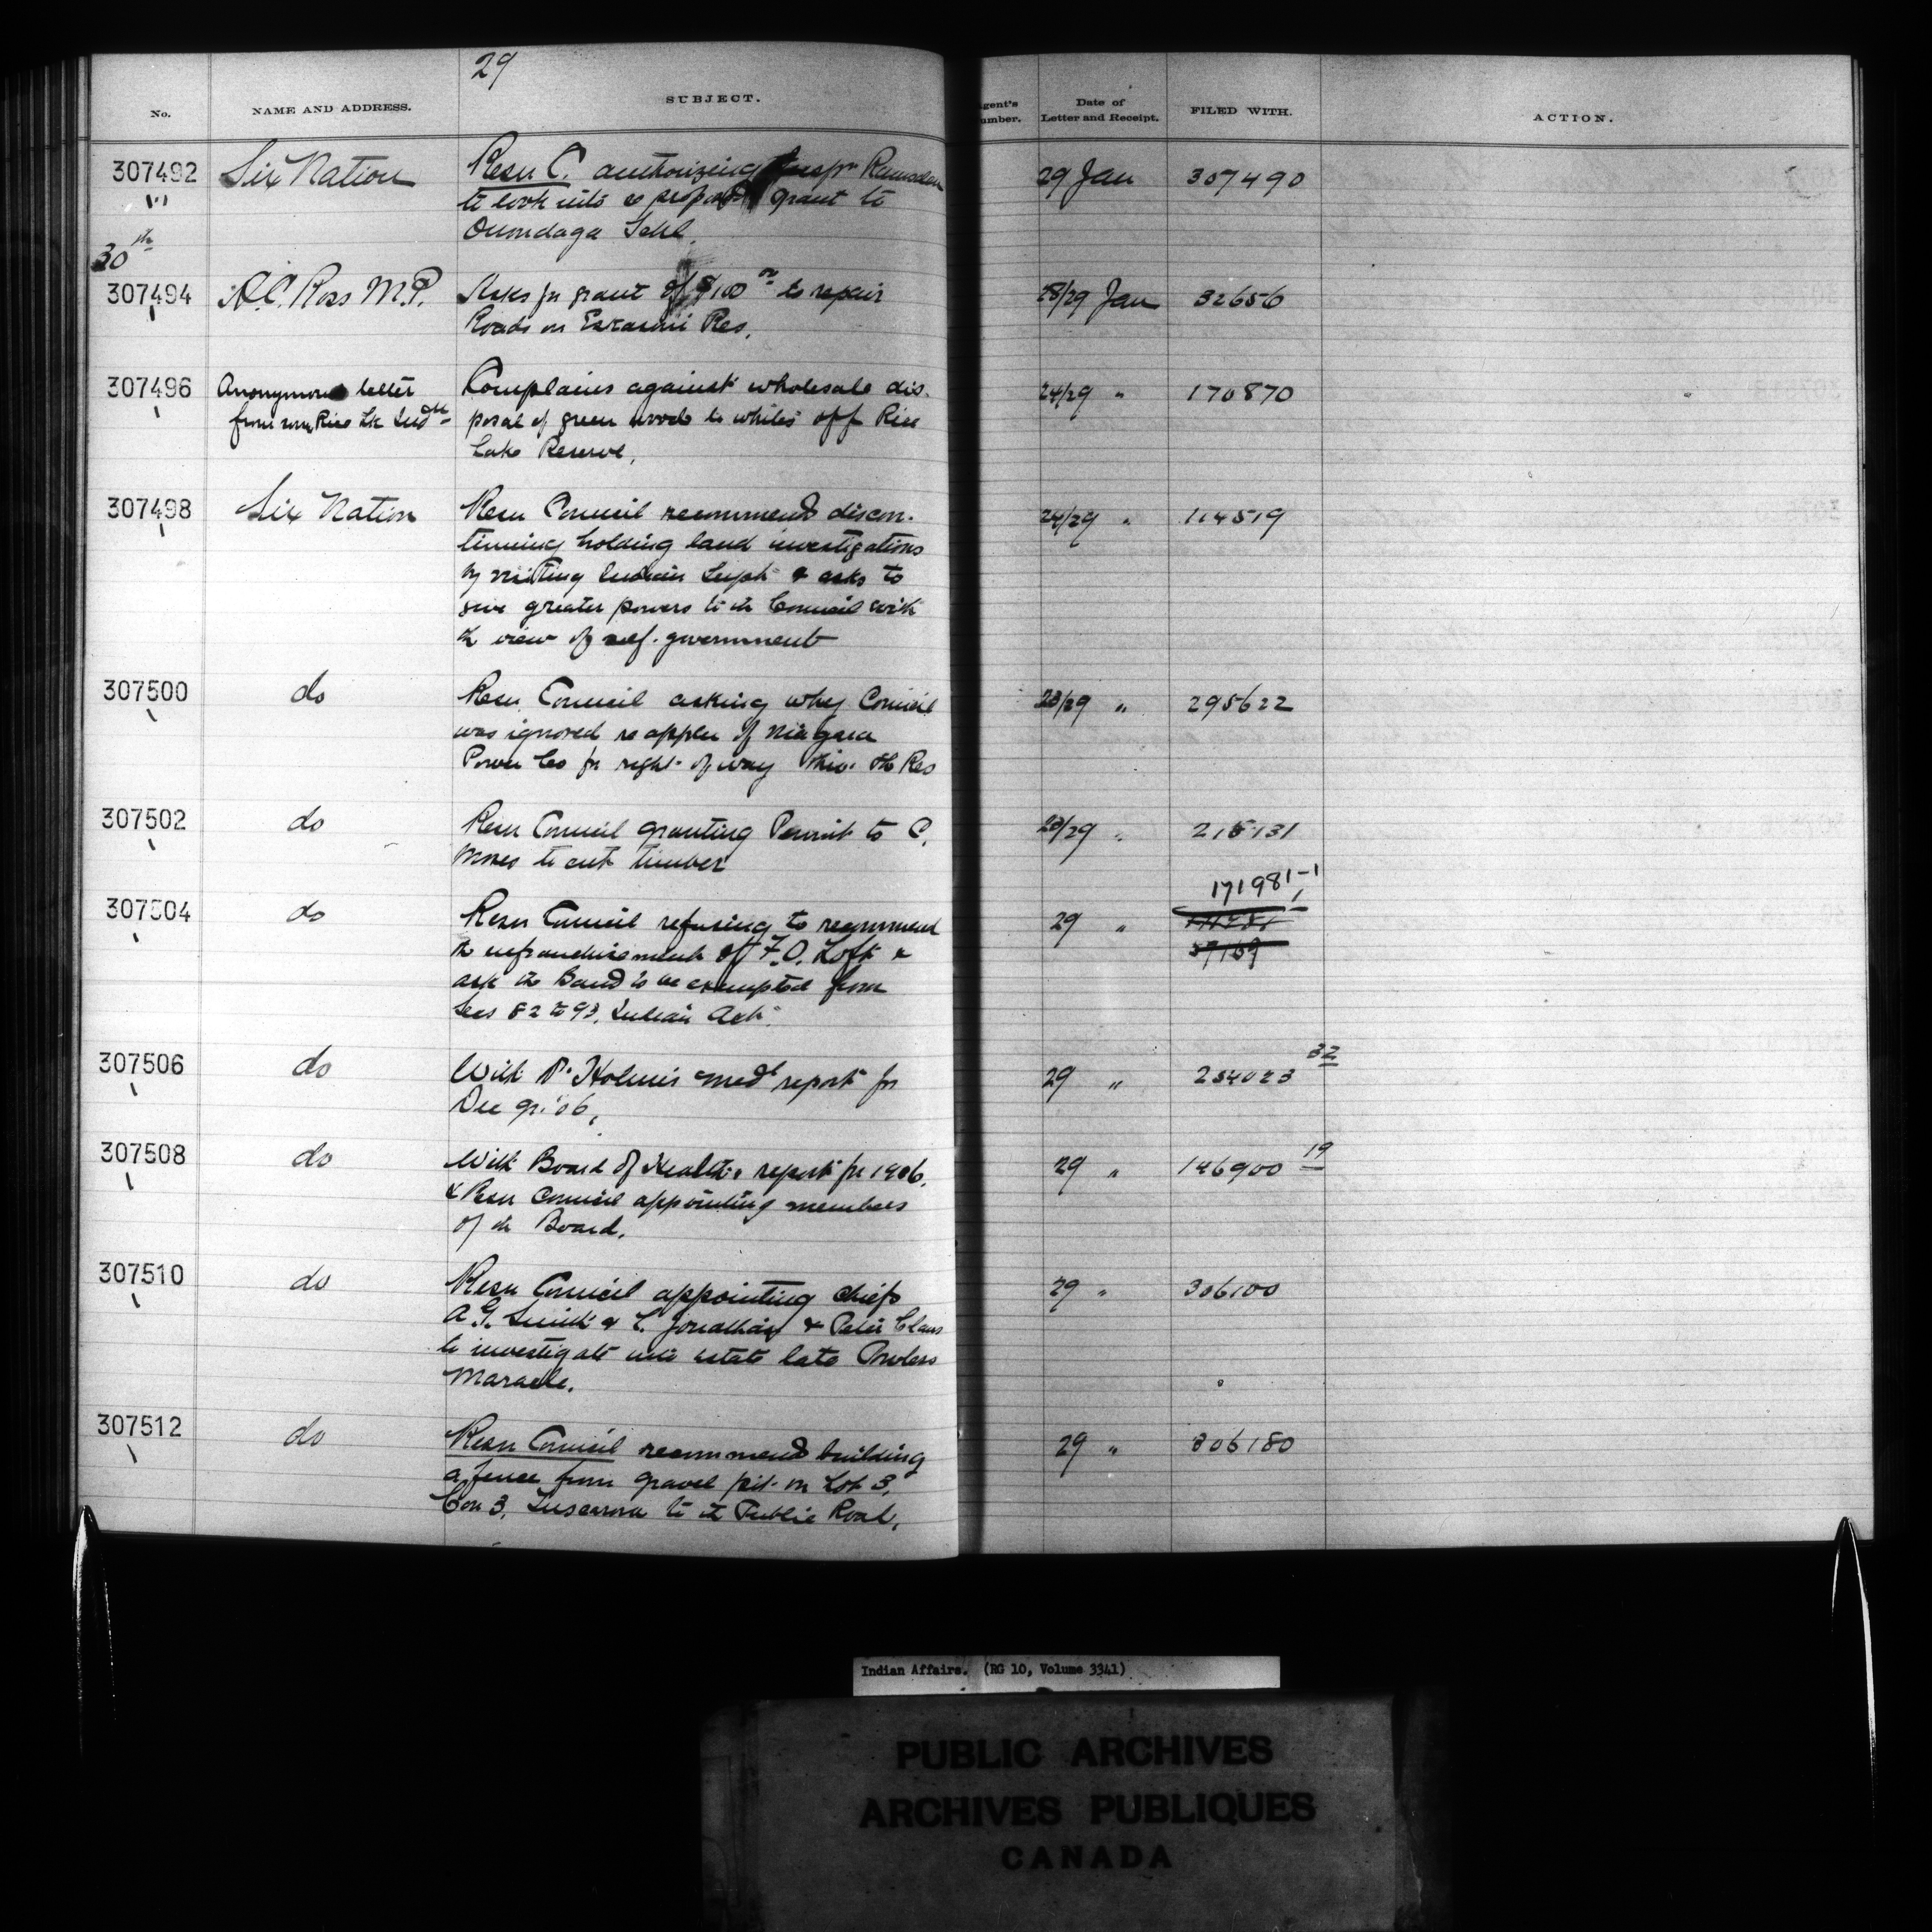 29
No. NAME AND ADDRESS. SUBJECT.
gent's umber. Date of Letter and Receipt. FILED WITH. ACTION.
307492 Six Nation Resn C. authorizing Inspr Ramsden 29 Jan 307490
to look into re proposed grant to
Onondaga Schl.
30th
307494 A.C. Ross M.P. Asks for grant of $100 to repair 28/29 Jan 32656
Roads on Eskasoni Res.
307496 Anonymous letter Complains against wholesale dis- 24/29 " 170870
from some Rice Lk Indn posal of green wood to whites off Rice
Lake Reserve.
307498 Six Nation Resn Council recommend discon- 24/29 " 114519
tinuing holding land investigations
by visiting Indian Supt & asks to
give greater powers to the Council with
the view of self-government
307500 do Resn Council asking why Council 23/29 " 295622
was ignored re appln of Niagara
Power Co for right of way thro' the Res
307502 do Resn Council granting Permit to C. 23/29 " 215131
Moses to cut timber
171981-1
307504 do Resn Council refusing to recommend 29 "
the enfranchisement of F.O. Loft & 57169
ask the Band to be exempted from
Secs 82 to 93, Indian Act.
307506 do With Dr Holmes medl report for 29 " 254023 32
Dec qr. '06,
307508 do With Board of Health report for 1906. 29 " 146900 19
& Resn Council appointing members
of the Board.
307510 do Resn Council appointing chiefs 29 " 306100
A.G. Smith & L. Jonathan & Peter Claus
to investigate into estate late Powless
Maracle.
307512 do Resn Council recommend building 29 " 306180
a fence from gravel pit on Lot 3,
Con 3, Tuscarora to the Public Road.
Indian Affairs. (RG 10, Volume 3341)
PUBLIC ARCHIVES
ARCHIVES PUBLIQUES
CANADA